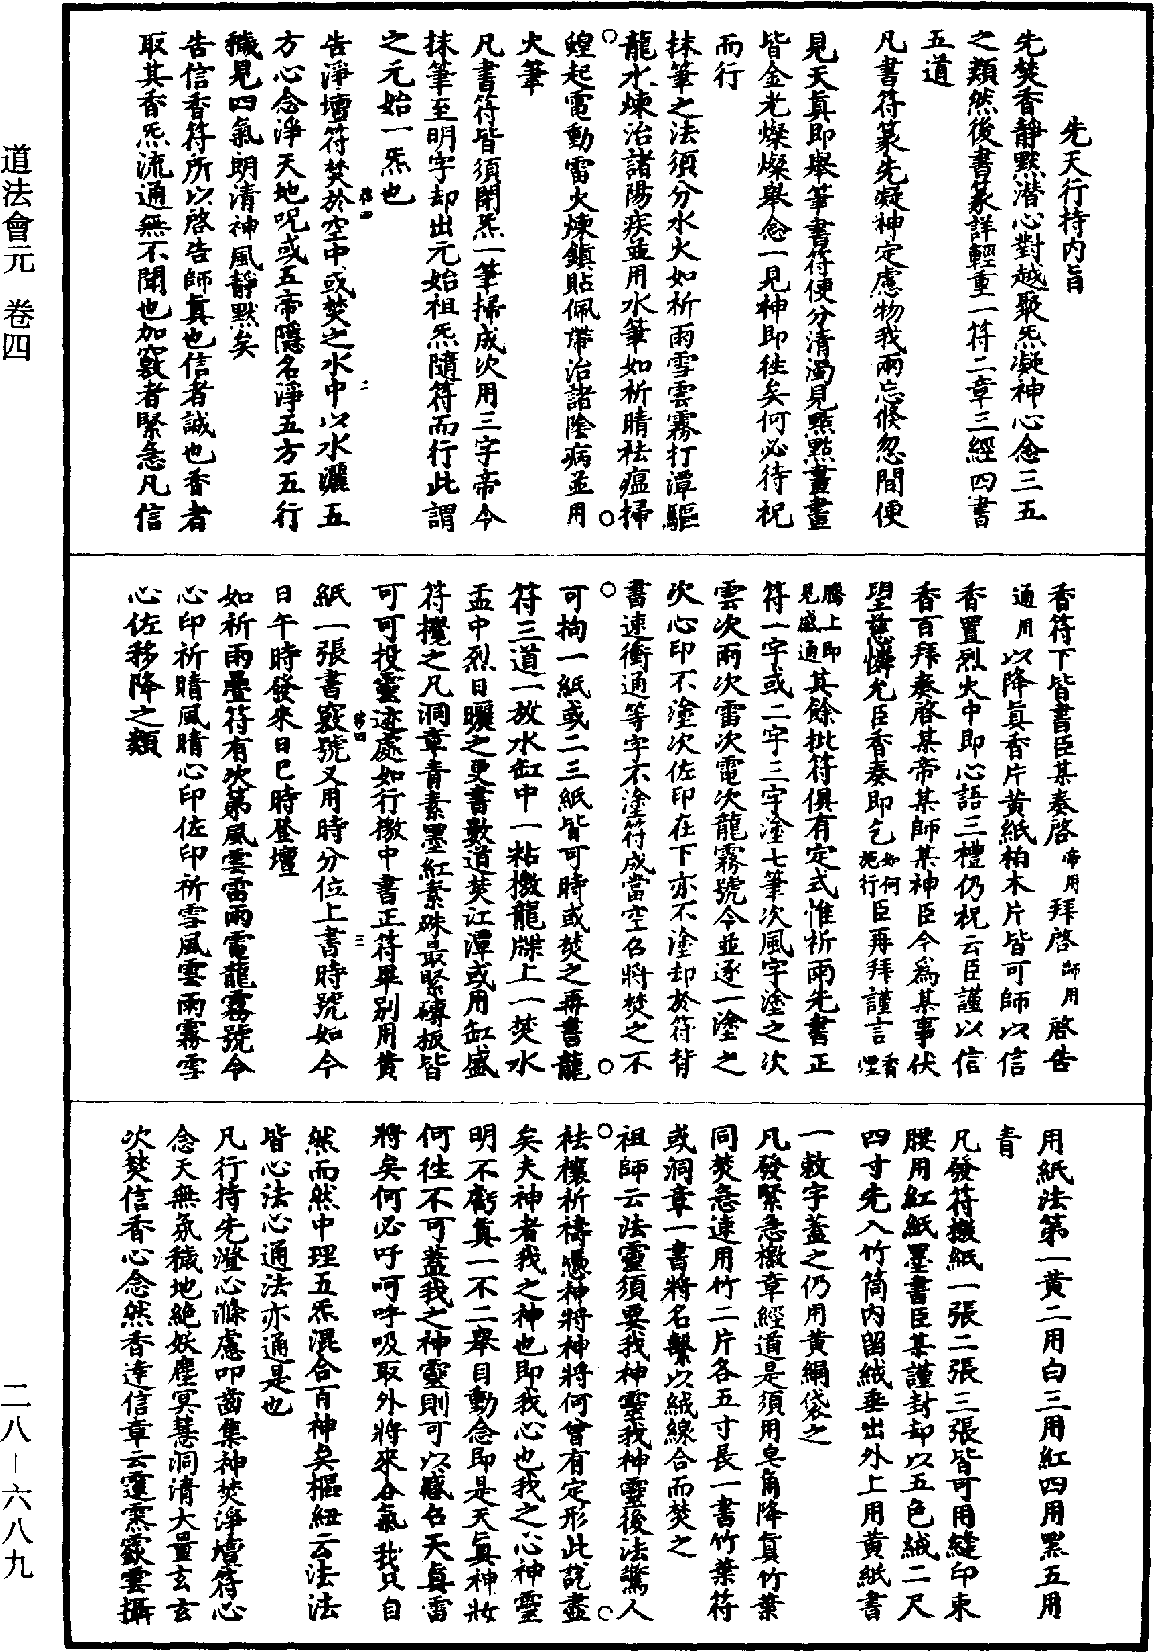 道法會元 卷四
先天行持內旨
先焚香靜默潛心對越聚炁凝神心念三五
之類然後書篆詳輕重一符二章三經四書
五道
凡書符篆先凝神定慮物我兩忘倏忽間便
見天真即舉筆書符便分清濁見點點畫畫
皆金光燦燦舉念一見神即往矣何必待祝
而行
抹筆之法須分水火如祈雨雪雲霧打潭驅
龍水煉治諸陽疾並用水筆如祈晴祛瘟掃
蝗起電動雷火煉鎮貼佩帶治諸陰病並用
火筆
凡書符皆須閉炁一筆掃成次用三字帝令
抹筆至明字却出元始祖炁隨符而行此謂
之元始一炁也
告淨壇符焚於空中或焚之水中以水灑五
方心念淨天地呪或五帝隱名淨五方五行
穢見四氣朗清神風靜默矣
告信香符所以啓告師真也信者誠也香者
取其香炁流通無不聞也加竅者緊急凡信
香符下皆書臣某奏啓帝用拜啓師用啓告
通用以降真香片黃紙柏木片皆可師以信
香置烈火中即心語三禮仍祝云臣謹以信
香百拜奏啓某帝某師某神臣今爲某事伏
望慈憐允臣香奏即乞如何施行臣再拜謹言香煙
騰上即見感通其餘批符俱有定式惟祈雨先書正
符一字或二字三字塗七筆次風字塗之次
雲次雨次雷次電次龍霧號令並逐一塗之
次心印不塗次佐印在下亦不塗却於符背
書速衝通等字不塗符成當空召將焚之不
可拘一紙或二三紙皆可時或焚之再書龍
符三道一放水缸中一粘檄龍牒上一焚水
盂中烈日曬之更書數道焚江潭或用缸盛
符攪之凡洞章青素墨紅素硃最緊磚板皆
可可投靈迹處如行檄中書正符畢別用黃
紙一張書竅號又用時分位上書時號如今
日午時發來日巳時登壇
如祈雨墨符有次第風雲雷雨電龍霧號令
心印祈晴風晴心印佐印祈雪風雲雨霧雪
心佐移降之類
用紙法第一黃二用白三用紅四用黑五用
青
凡發符檄紙一張二張三張皆可用縫印束
腰用紅紙墨書臣某謹封却以五色絨二尺
四寸先入竹筒內留絨垂出外上用黃紙書
一敕字蓋之仍用黃絹袋之
凡發緊急檄章經道是須用皂角降真竹葉
同焚急速用竹二片各五寸長一書竹葉符
或洞章一書將名繫以絨線合而焚之
祖師云法靈須要我神靈我神靈後法驚人
祛禳祈禱憑神將神將何曾有定形此說盡
矣夫神者我之神也即我心也我之心神靈
明不虧真一不二舉目動念即是天真神妙
何往不可蓋我之神靈則可以感召天真雷
將矣何必呼呵呼吸取外將來合氣我只自
然而然中理五炁混合百神矣樞紐云法法
皆心法心通法亦通是也
凡行持先澄心滌慮叩齒集神焚淨壇符心
念天無氛穢地絕妖塵冥慧洞清大量玄玄
次焚信香心念然香達信章云運熏歘雲攝
二八-六八九